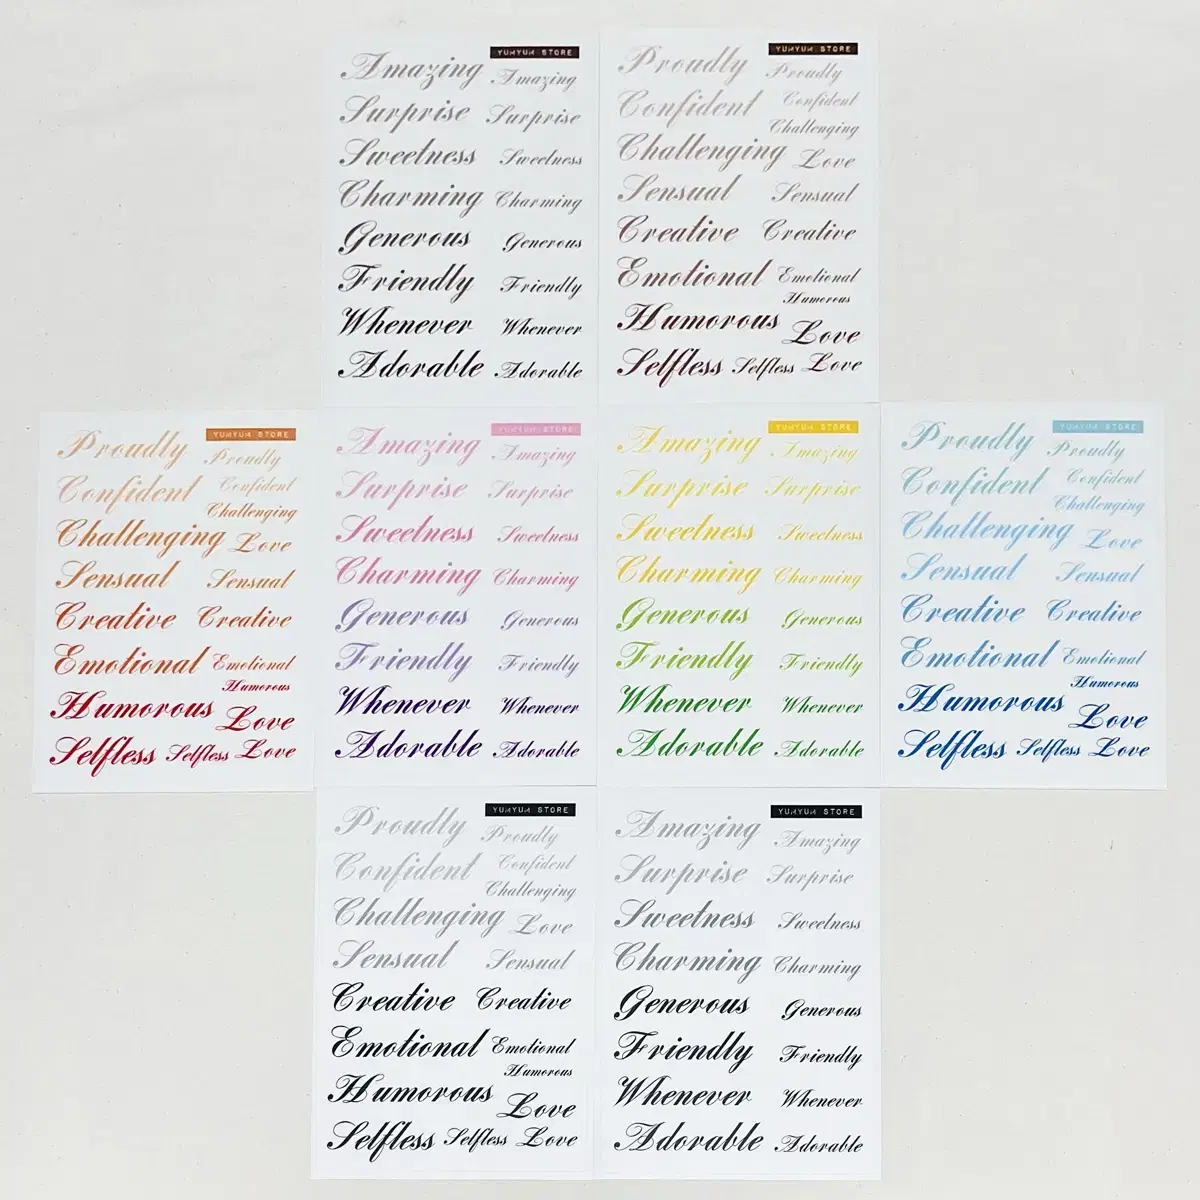 YUMYUM STORE
Amazing Amazing
Surprise Surprise
Sweetness Sweetness
Charming Charming
Generous Generous
Friendly Friendly
Whenever Whenever
Adorable Adorable
YUMYUM STORE
Proudly Proudly
Confident Confident
Challenging
Challenging Love
Sensual Sensual
Creative Creative
Emotional Emotional
Humorous
Humorous Love
Selfless Selfless Love
YUMYUM STORE
Proudly Proudly
Confident Confident
Challenging
Challenging Love
Sensual Sensual
Creative Creative
Emotional Emotional
Humorous
Humorous Love
Selfless Selfless Love
YUMYUM STORE
Amazing Amazing
Surprise Surprise
Sweetness Sweetness
Charming Charming
Generous Generous
Friendly Friendly
Whenever Whenever
Adorable Adorable
YUMYUM STORE
Amazing Amazing
Surprise Surprise
Sweetness Sweetness
Charming Charming
Generous Generous
Friendly Friendly
Whenever Whenever
Adorable Adorable
YUMYUM STORE
Proudly Proudly
Confident Confident
Challenging
Challenging Love
Sensual Sensual
Creative Creative
Emotional Emotional
Humorous
Humorous Love
Selfless Selfless Love
YUMYUM STORE
Proudly Proudly
Confident Confident
Challenging
Challenging Love
Sensual Sensual
Creative Creative
Emotional Emotional
Humorous
Humorous Love
Selfless Selfless Love
YUMYUM STORE
Amazing Amazing
Surprise Surprise
Sweetness Sweetness
Charming Charming
Generous Generous
Friendly Friendly
Whenever Whenever
Adorable Adorable